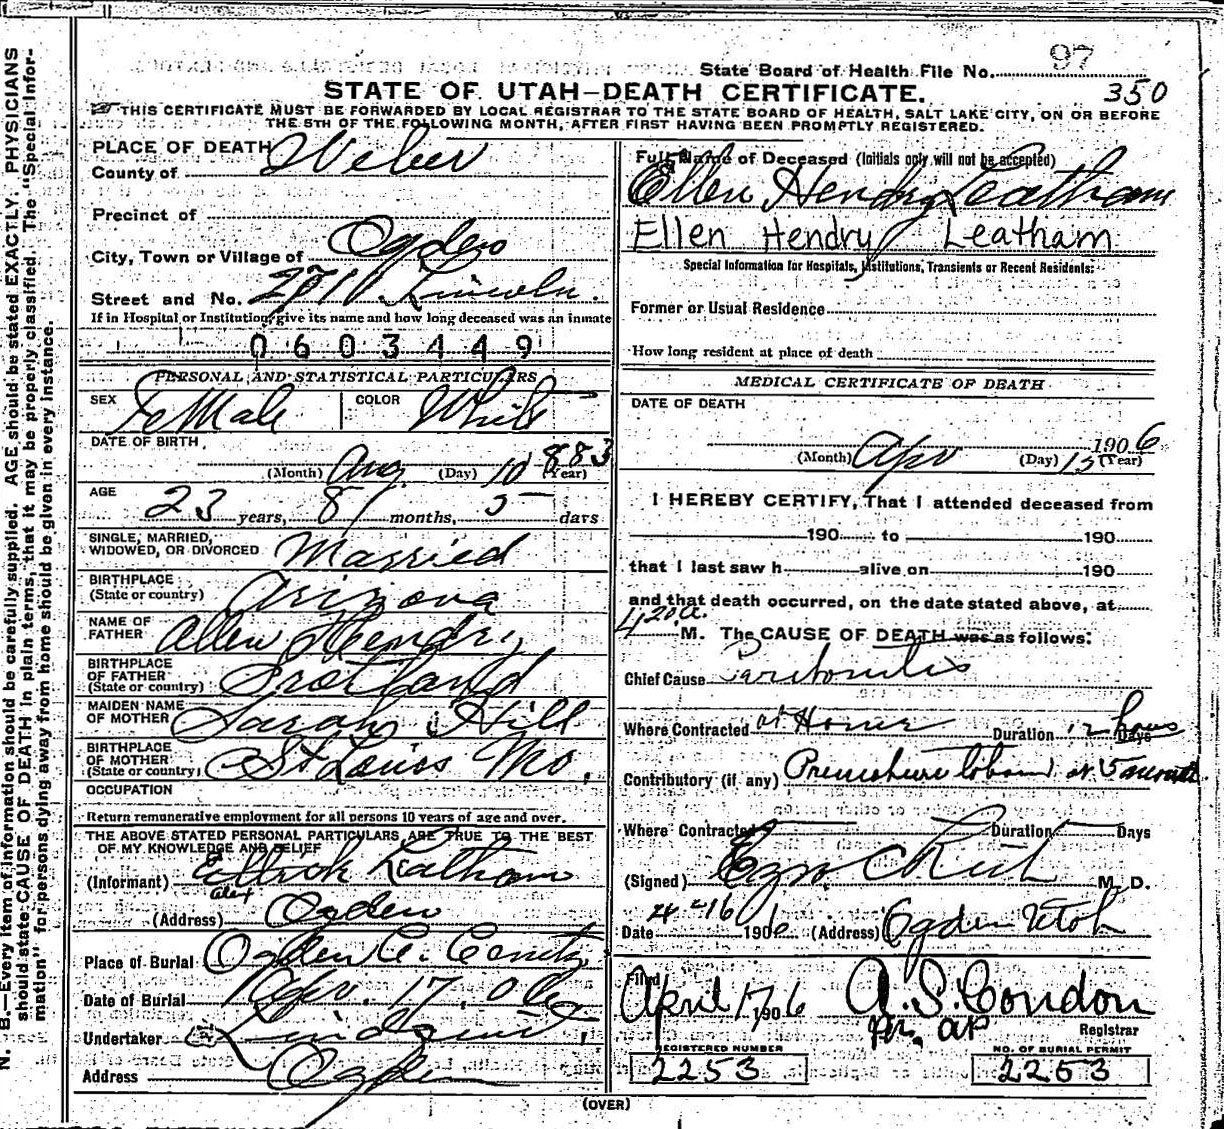 N. B.—Every item of information should be carefully supplied. AGE should be stated EXACTLY. PHYSICIANS
should state CAUSE OF DEATH in plain terms, that it may be properly classified. The "Special Infor-
mation" for persons dying away from home should be given in every instance.
97
State Board of Health File No.
STATE OF UTAH—DEATH CERTIFICATE. 350
THIS CERTIFICATE MUST BE FORWARDED BY LOCAL REGISTRAR TO THE STATE BOARD OF HEALTH, SALT LAKE CITY, ON OR BEFORE
THE 5TH OF THE FOLLOWING MONTH, AFTER FIRST HAVING BEEN PROMPTLY REGISTERED.
PLACE OF DEATH
County of Weber
Precinct of
City, Town or Village of Ogden
Street and No. Lincoln.
If in Hospital or Institution, give its name and how long deceased was an inmate
0603449
PERSONAL AND STATISTICAL PARTICULARS
SEX FeMale COLOR White
DATE OF BIRTH
(Month) Aug. (Day) 10 883 (Year)
AGE
23 years, 8 months, 5 days
SINGLE, MARRIED,
WIDOWED, OR DIVORCED Married
BIRTHPLACE
(State or country) Arizona
NAME OF
FATHER Allen Hendry
BIRTHPLACE
OF FATHER
(State or country) Scotland
MAIDEN NAME
OF MOTHER Sarah Hill
BIRTHPLACE
OF MOTHER
(State or country) St Louis Mo.
OCCUPATION
Return remunerative employment for all persons 10 years of age and over.
THE ABOVE STATED PERSONAL PARTICULARS ARE TRUE TO THE BEST
OF MY KNOWLEDGE AND BELIEF
(Informant) Latham
alex
(Address) Ogden
Place of Burial Ogden C. Cemty
Date of Burial Apr. 17. 06
Undertaker Lindquist,
Address Ogden
Full Name of Deceased (Initials only will not be accepted)
Ellen Hendry Leatham
Ellen Hendry Leatham
Special Information for Hospitals, Institutions, Transients or Recent Residents:
Former or Usual Residence
How long resident at place of death
MEDICAL CERTIFICATE OF DEATH
DATE OF DEATH
1906
(Month) Apr (Day) 15 (Year)
I HEREBY CERTIFY, That I attended deceased from
190 to 190
that I last saw h alive on 190
and that death occurred, on the date stated above, at
4 20 a. M. The CAUSE OF DEATH was as follows:
Chief Cause Peritonitis
Where Contracted at Home Duration 12 hours Days
Contributory (if any) Premature labour at 5 month
Where Contracted Duration Days
(Signed) Ezra C Rich M. D.
Date 4-16 1906 (Address) Ogden Utah
Filed
April 17 1906 A. S. Condon
Registrar
REGISTERED NUMBER NO. OF BURIAL PERMIT
2253 2253
(OVER)